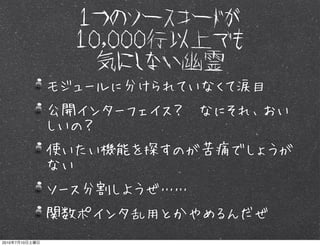 1つのソースコードが
10,000行以上でも
気にしない幽霊
モジュールに分けられていなくて涙目
公開インターフェイス？ なにそれ、おい
しいの？
使いたい機能を探すのが苦痛でしょうが
ない
ソース分割しようぜ……
関数ポインタ乱用とかやめるんだぜ
2010年7月10日土曜日